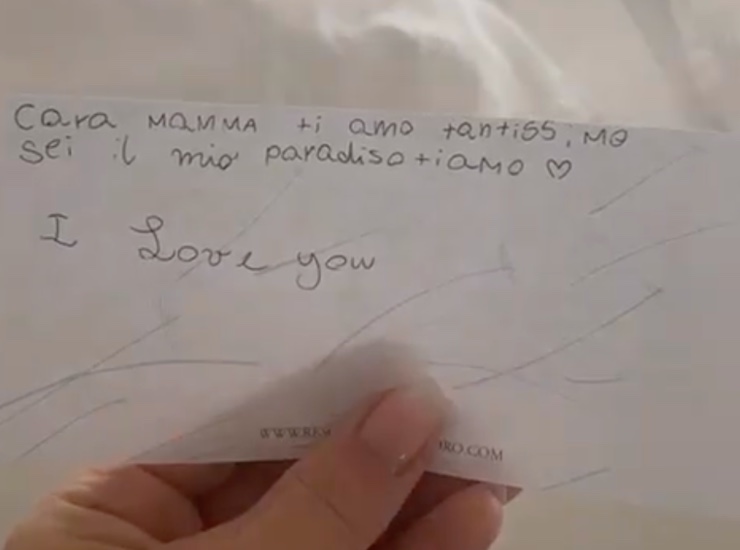 Cara MAMMA ti amo tantissiMo
sei il mio paradiso tiaMo ♡
I Love you